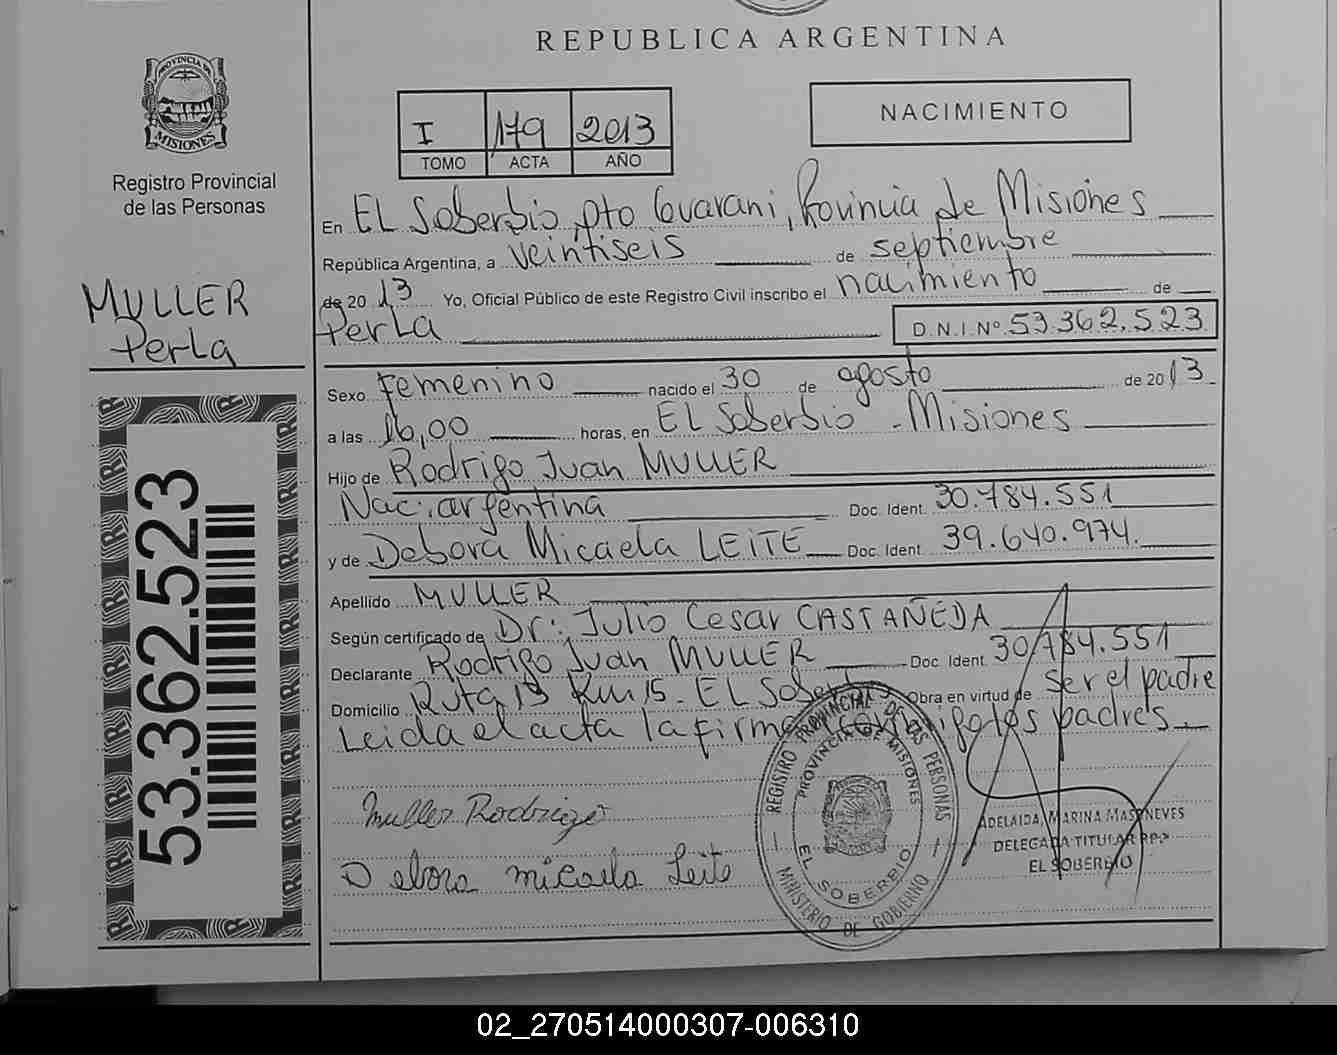 REPUBLICA ARGENTINA
PROVINCIA DE
MISIONES
Registro Provincial
de las Personas
MULLER
Perla
53.362.523
I 179 2013
TOMO ACTA AÑO
NACIMIENTO
En EL Soberbio, Dto Guarani, Provincia de Misiones
República Argentina, a veintiseis de septiembre
de 2013 Yo, Oficial Público de este Registro Civil inscribo el nacimiento de
Perla D.N.I.Nº 53.362.523
Sexo Femenino nacido el 30 de agosto de 2013
a las 16,00 horas, en EL Soberbio - Misiones
Hijo de Rodrigo Juan MULLER
Nac: argentina Doc. Ident. 30.784.551
y de Debora Micaela LEITE Doc. Ident. 39.640.974.
Apellido MULLER
Según certificado de Dr: Julio Cesar CASTAÑEDA
Declarante Rodrigo Juan MULLER Doc. Ident. 30.784.551
Domicilio Ruta 13 Km 15. EL Soberbio Obra en virtud de ser el padre
Leida el acta la firman conmigo los padres
Muller Rodrigo
Debora micaela Leite
REGISTRO PROVINCIAL DE LAS PERSONAS
PROVINCIA DE MISIONES
EL SOBERBIO
MINISTERIO DE GOBIERNO
ADELAIDA MARINA
DELEGADA TITULAR R.P.P
EL SOBERBIO
02_270514000307-006310